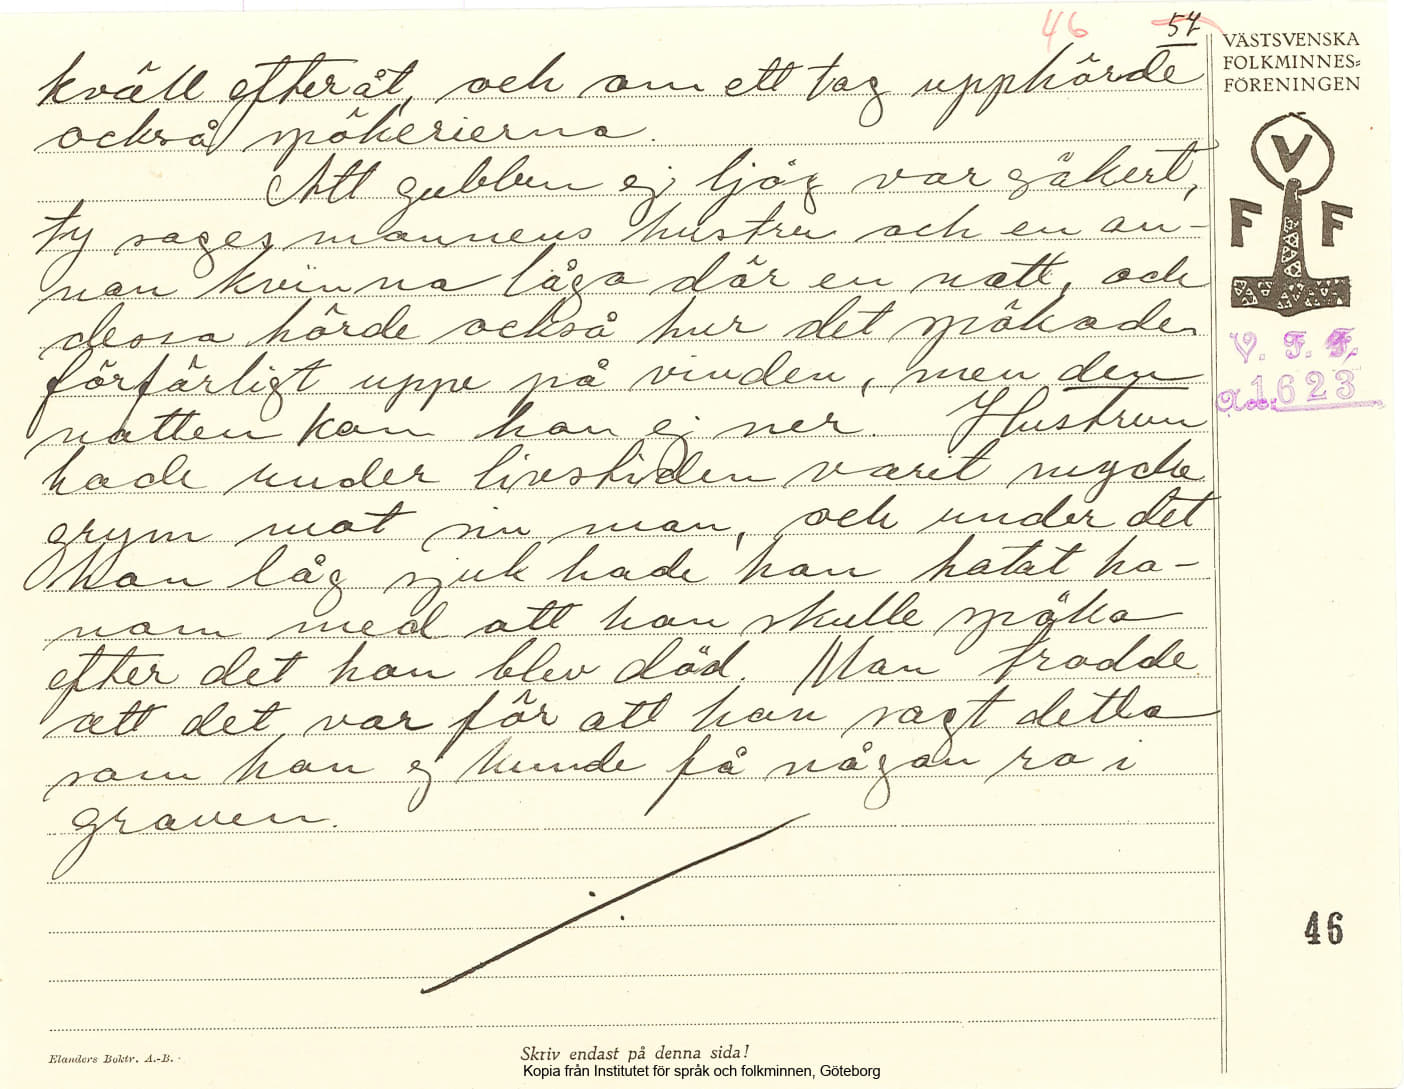 46 57
kväll efteråt, och om ett tag upphörde
också spökerierna.
Att gubben ej ljög var säkert,
ty sages mannens hustru och en an-
nan kvinna låga där en natt, och
dessa hörde också hur det spökade
förfärligt uppe på vinden, men den
natten kom han ej ner. Hustrun
hade under livstiden varit mycke
grym mot sin man, och under det
han låg sjuk hade han hotat ho-
nom med att han skulle spöka
efter det han blev död. Man trodde
att det var för att han sagt detta
som han ej kunde få någon ro i
graven.
VÄSTSVENSKA
FOLKMINNES-
FÖRENINGEN
V
F F
V. F. F.
Acc. 1623
46
Elanders Boktr. A.-B.
Skriv endast på denna sida!
Kopia från Institutet för språk och folkminnen, Göteborg